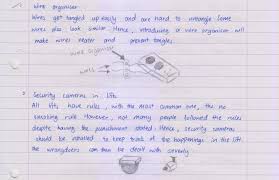 1 Wire organiser
Wires get tangled up easily and are hard to untangle. Some
wires also look similar. Hence, introducing a wire organiser will
make wires neater and prevent tangles.
wire organiser
wires
2 Security cameras in lift
All lifts have rules, with the most common one, the no
smoking rule. However, not many people followed the rules
despite having the punishment stated. Hence, security cameras
should be installed to keep track of the happenings in the lift
the wrongdoers can then be dealt with severely